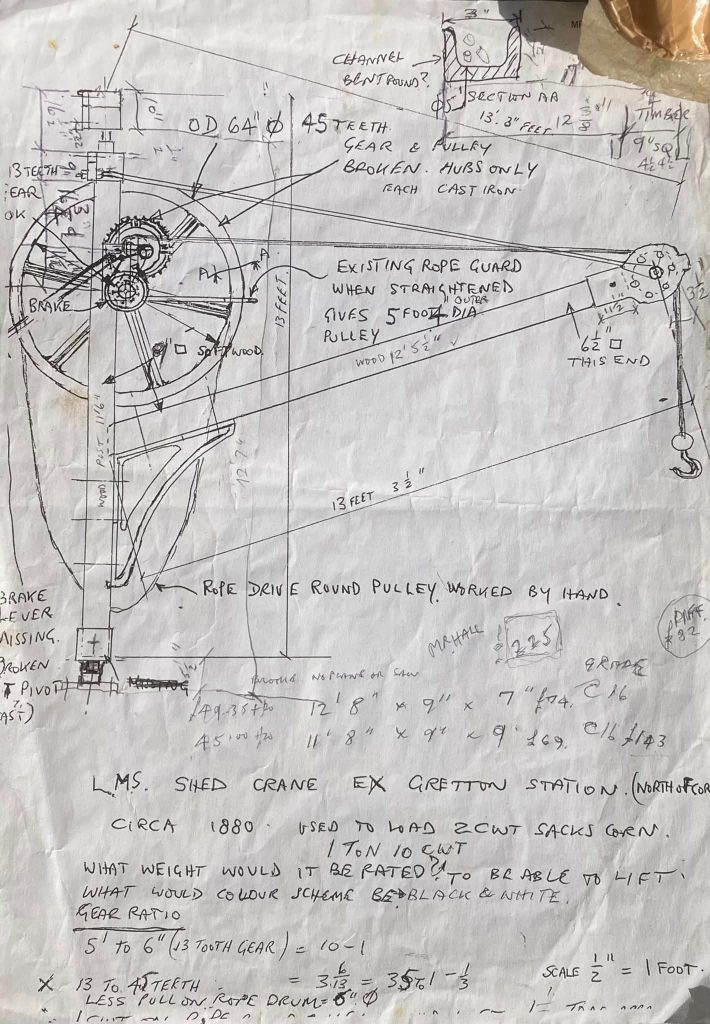 3"
CHANNEL
BENT ROUND?
SECTION AA
13'. 3" FEET
12 3/8"
TIMBER
9" SQ
4½ 4½
10"
16½
OD 64" Ø
45 TEETH
GEAR & PULLEY
BROKEN. HUBS ONLY
EACH CAST IRON.
13 TEETH
EAR
OK
9"
BRAKE
13 FEET.
EXISTING ROPE GUARD
WHEN STRAIGHTENED
OUTER
GIVES 5 FOOT 4" DIA
PULLEY
SOFTWOOD.
WOOD 12' 5½"
11½"
6½" □
THIS END
POST 11'6"
WOOD
12'7"
13 FEET 3½"
ROPE DRIVE ROUND PULLEY. WORKED BY HAND.
BRAKE
LEVER
MISSING.
BROKEN
T PIVOT
MISSING
MR HALL
225
DIFF.
£82
GRADE
NO PLANE OR SAW
49.35 + 
12' 8" x 9" x 7" £74. C16
45.00 + 
11' 8" x 9" x 9" £69. C16 £143
LMS. SHED CRANE EX GRETTON STATION. (NORTH OF COR
CIRCA 1880. USED TO LOAD 2CWT SACKS CORN.
1 TON 10 CWT
WHAT WEIGHT WOULD IT BE RATED?! TO BE ABLE TO LIFT.
WHAT WOULD COLOUR SCHEME BE BLACK & WHITE.
GEAR RATIO
5' TO 6" (13 TOOTH GEAR) = 10-1
X 13 TO 45 TEETH = 3 6/13 = 35 TO 1 - 1/3
SCALE ½" = 1 FOOT.
LESS PULL ON ROPE DRUM = 6" Ø